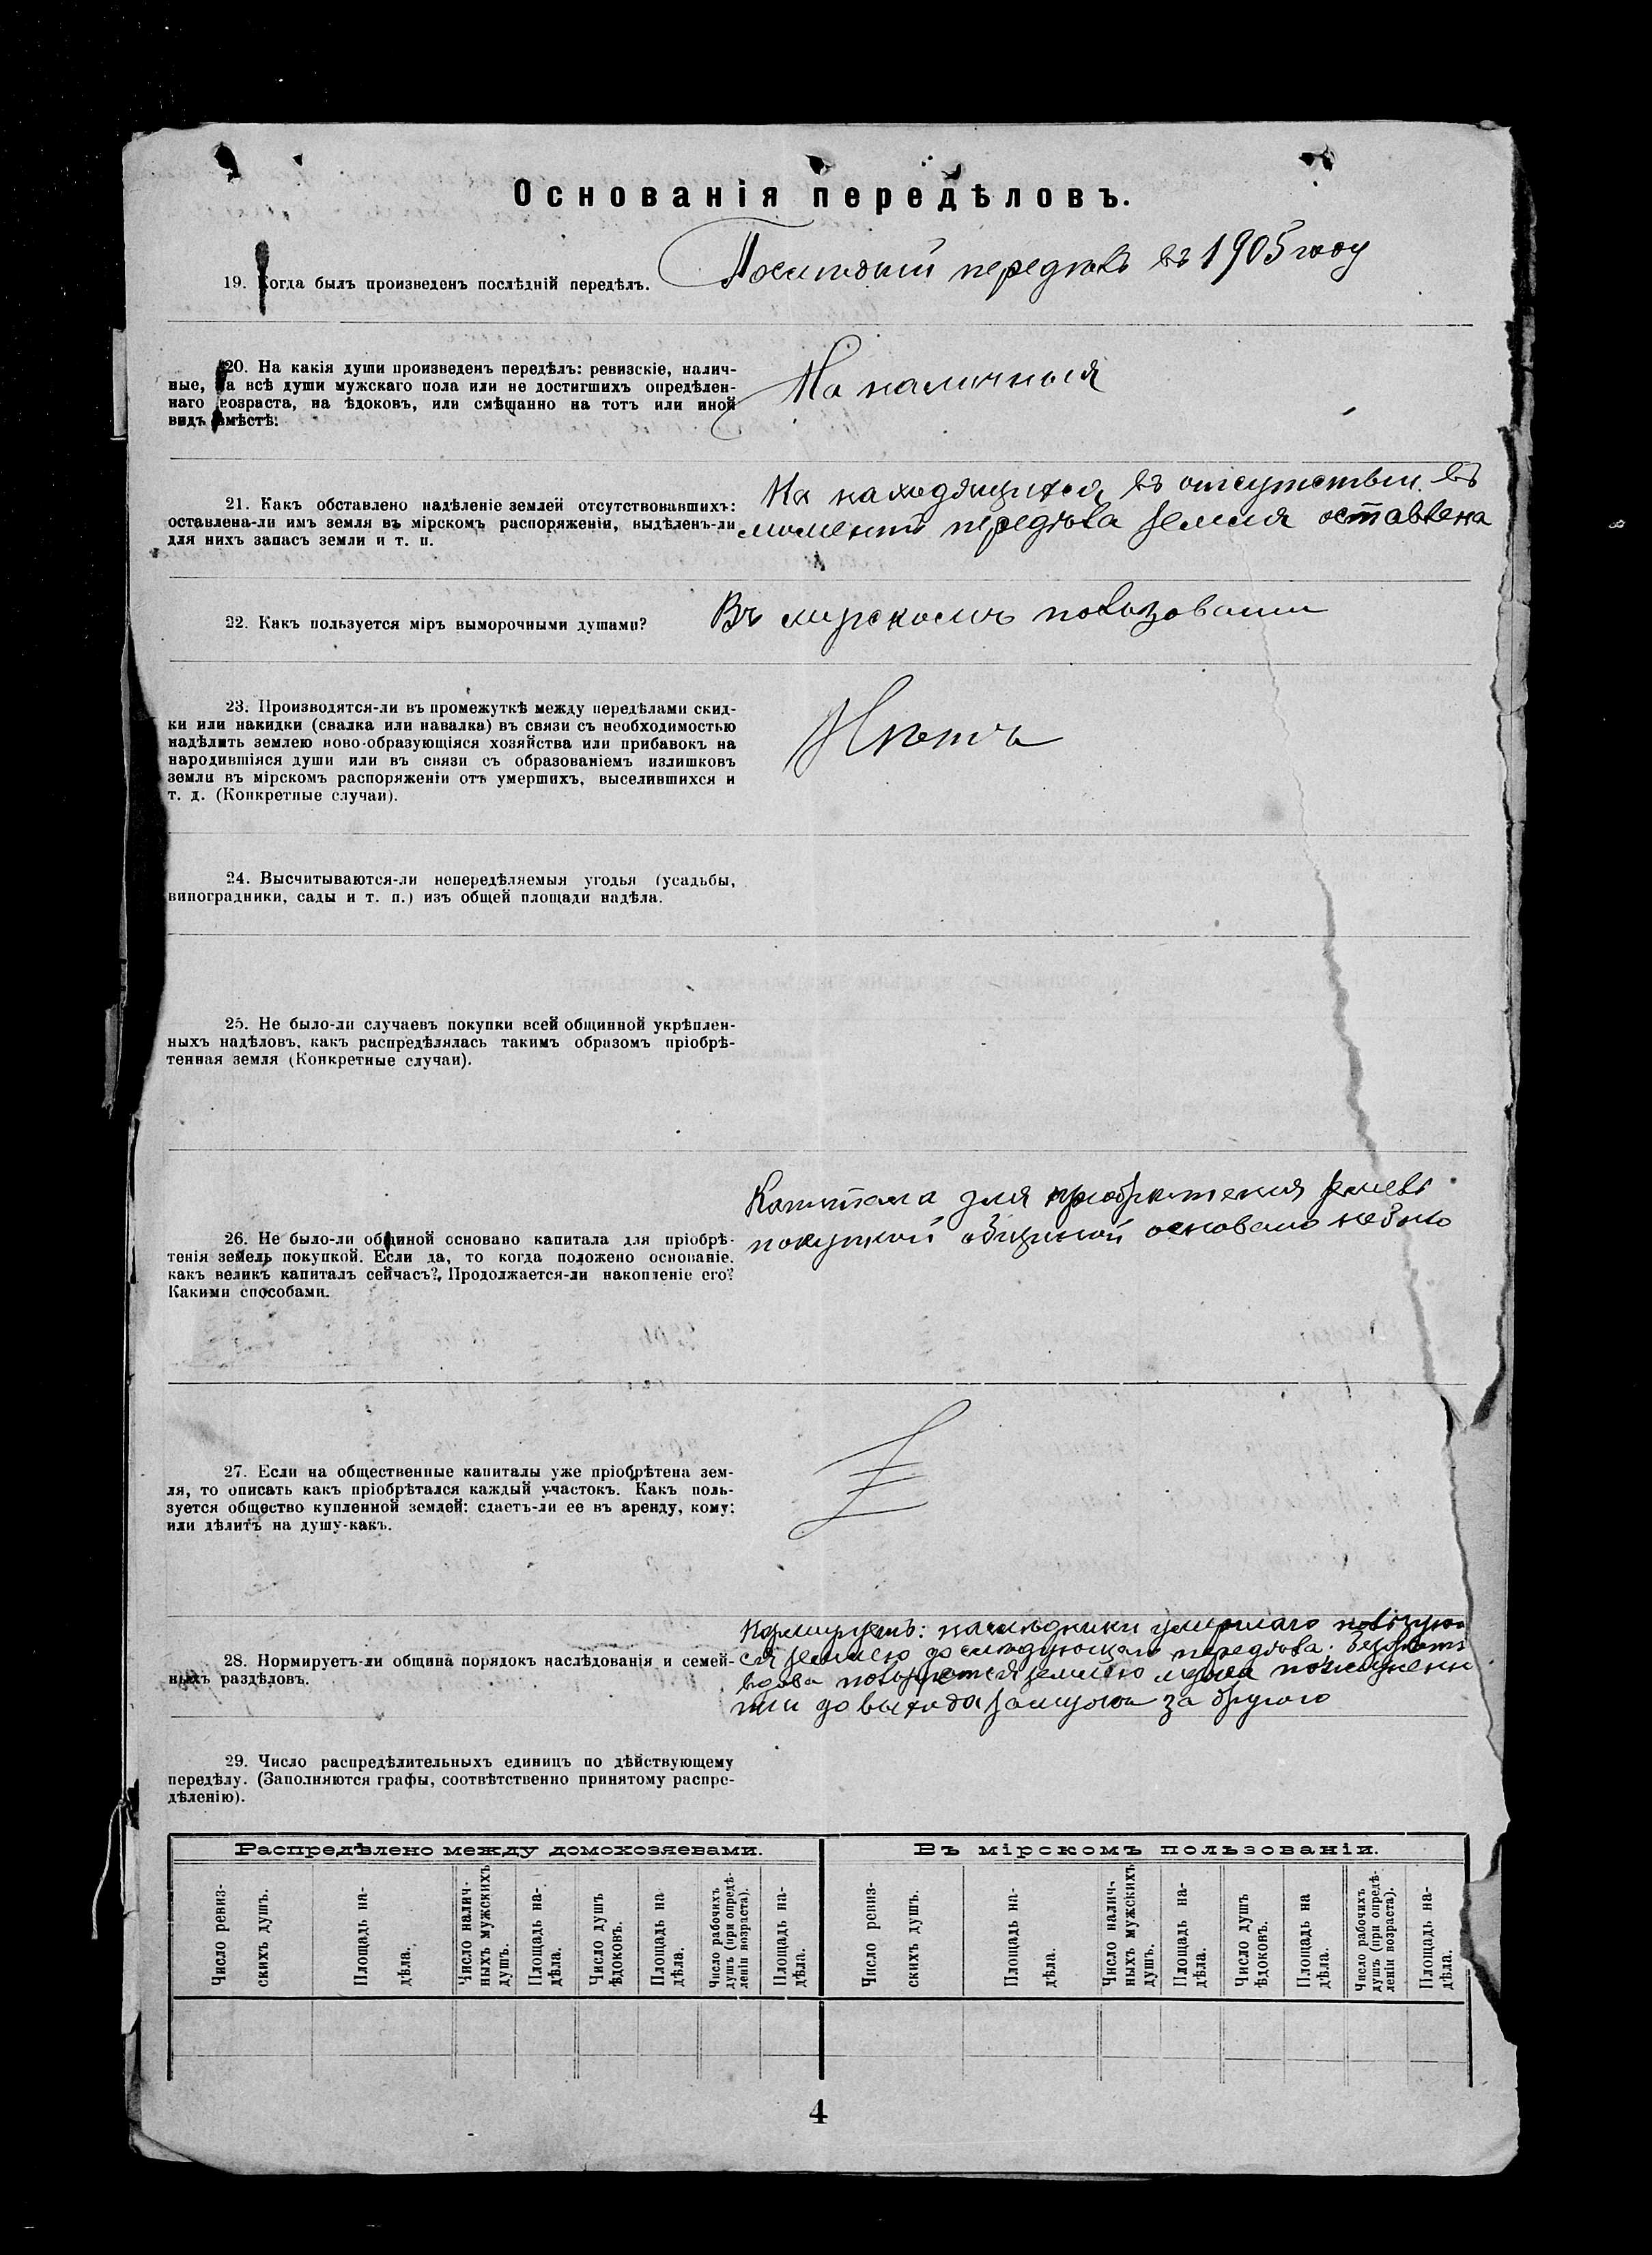 Основанія передѣловъ.
19. Когда былъ произведенъ послѣдній передѣлъ.
Послѣдній передѣлъ въ 1905 году
20. На какія души произведенъ передѣлъ: ревизскіе, налич-
ные, на всѣ души мужскаго пола или не достигшихъ опредѣлен-
наго возраста, на ѣдоковъ, или смѣшанно на тотъ или иной
видъ вмѣстѣ:
На наличныя
21. Какъ обставлено надѣленіе землей отсутствовавшихъ:
оставлена-ли имъ земля въ мірскомъ распоряженіи, выдѣленъ-ли
для нихъ запасъ земли и т. п.
На находящихся въ отсутствіи въ
моментъ передѣла земля оставлена
22. Какъ пользуется міръ выморочными душами?
Въ мірскомъ пользованіи
23. Производятся-ли въ промежуткѣ между передѣлами скид-
ки или накидки (свалка или навалка) въ связи съ необходимостью
надѣлить землею ново-образующіяся хозяйства или прибавокъ на
народившіяся души или въ связи съ образованіемъ излишковъ
земли въ мірскомъ распоряженіи отъ умершихъ, выселившихся и
т. д. (Конкретные случаи).
Нѣтъ
24. Высчитываются-ли непередѣляемыя угодья (усадьбы,
виноградники, сады и т. п.) изъ общей площади надѣла.
25. Не было-ли случаевъ покупки всей общинной укрѣплен-
ныхъ надѣловъ, какъ распредѣлялась такимъ образомъ пріобрѣ-
тенная земля (Конкретные случаи).
26. Не было-ли общиной основано капитала для пріобрѣ-
тенія земель покупкой. Если да, то когда положено основаніе,
какъ великъ капиталъ сейчасъ?, Продолжается-ли накопленіе его?
Какими способами.
Капитала для пріобрѣтенія земель
покупкой общиной основано не было
27. Если на общественные капиталы уже пріобрѣтена зем-
ля, то описать какъ пріобрѣтался каждый участокъ. Какъ поль-
зуется общество купленной землей: сдаетъ-ли ее въ аренду, кому:
или дѣлитъ на душу-какъ.
28. Нормируетъ-ли община порядокъ наслѣдованія и семей-
ныхъ раздѣловъ.
Нормируетъ: наслѣдники умершаго пользую
ся землею до слѣдующаго передѣла.
вдова пользуется землею мужа
до выхода замужъ за другого
29. Число распредѣлительныхъ единицъ по дѣйствующему
передѣлу. (Заполняются графы, соотвѣтственно принятому распре-
дѣленію).
Распредѣлено между домохозяевами.
Въ мірскомъ пользованіи.
Число ревиз-
скихъ душъ.
Площадь на-
дѣла.
Число налич-
ныхъ мужскихъ
душъ.
Площадь на-
дѣла.
Число душъ
ѣдоковъ.
Площадь на
дѣла.
Число рабочихъ
душъ (при опредѣ-
леніи возраста).
Площадь на-
дѣла.
Число ревиз-
скихъ душъ.
Площадь на-
дѣла.
Число налич-
ныхъ мужскихъ
душъ.
Площадь на-
дѣла.
Число душъ
ѣдоковъ.
Площадь на
дѣла.
Число рабочихъ
душъ (при опредѣ-
леніи возраста).
Площадь на-
дѣла.
4